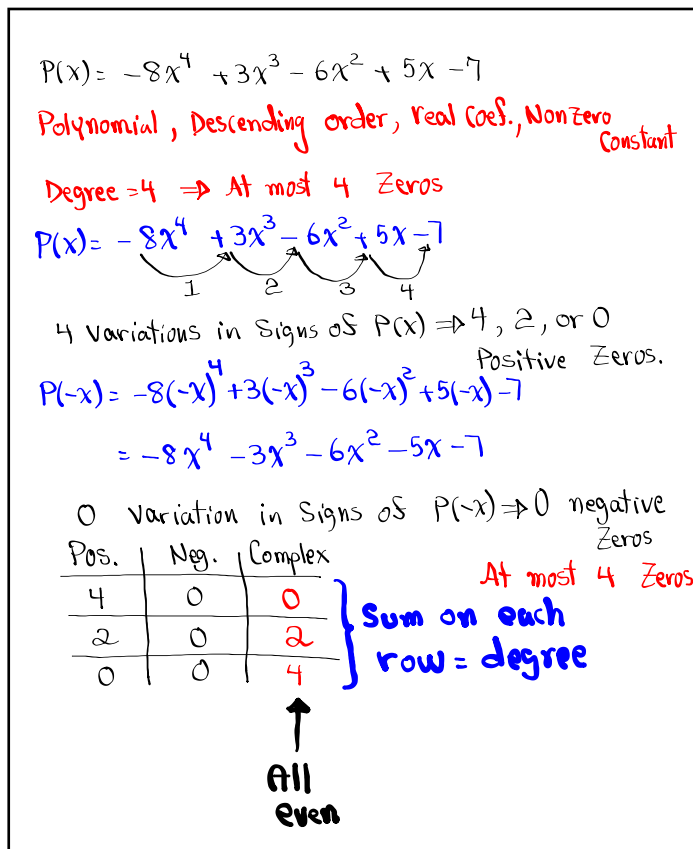 P(x) = -8x⁴ + 3x³ - 6x² + 5x - 7
Polynomial, Descending order, real Coef., Non Zero
Constant
Degree = 4 ⇒ At most 4 Zeros
P(x) = -8x⁴ + 3x³ - 6x² + 5x - 7
1 2 3 4
4 Variations in Signs of P(x) ⇒ 4, 2, or 0
Positive Zeros.
P(-x) = -8(-x)⁴ + 3(-x)³ - 6(-x)² + 5(-x) - 7
= -8x⁴ - 3x³ - 6x² - 5x - 7
0 Variation in Signs of P(-x) ⇒ 0 negative
Zeros
Pos. | Neg. | Complex
At most 4 Zeros
4 | 0 | 0
2 | 0 | 2
0 | 0 | 4
Sum on each
row = degree
All
even